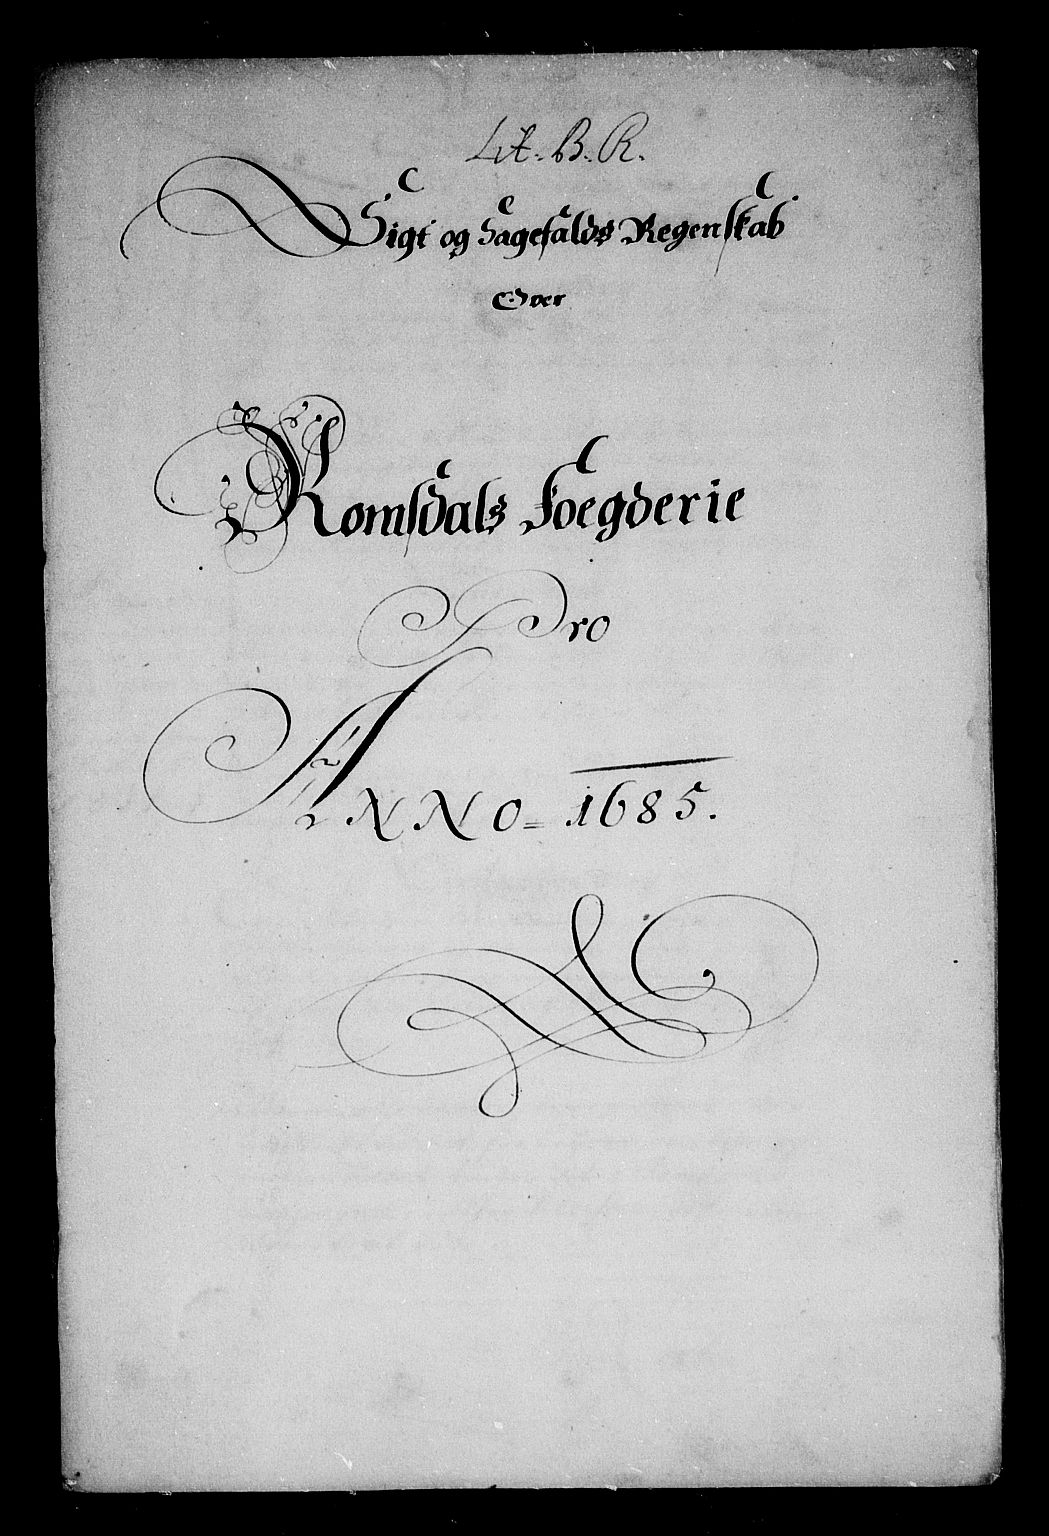 Lit. B. R.
Sigt og Sagefalds Regenskab
Over
Romsdals Foegderie
Pro
ANNO = 1685.